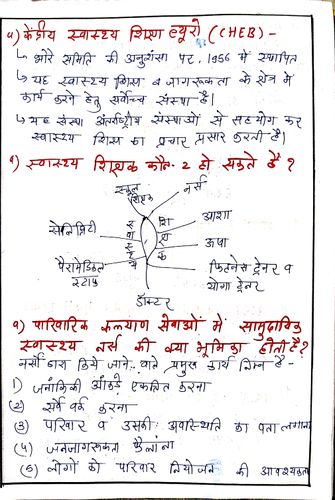 ५) केंद्रीय स्वास्थ्य शिक्षा ब्यूरो (CHEB) -
↳ भोरे समिति की अनुशंसा पर, 1956 में स्थापित
↳ यह स्वास्थ्य शिक्षा व जागरूकता के क्षेत्र में
कार्य करने हेतु सर्वोच्च संस्था है।
↳ यह संस्था अंतर्राष्ट्रीय संस्थाओं से सहयोग कर
स्वास्थ्य शिक्षा का प्रचार प्रसार करती है।
१) स्वास्थ्य शिक्षक कौन-2 हो सकते है ?
स्कूल
शिक्षक
नर्स
आशा
सेलिब्रिटी
स्वास्थ्य
शिक्षक
ऊषा
पैरामेडिकल
स्टाफ
फिटनेस ट्रेनर व
योगा ट्रेनर
डॉक्टर
१) पारिवारिक कल्याण सेवाओं में सामुदायिक
स्वास्थ्य नर्स की क्या भूमिका होती है?
नर्सों द्वारा किये जाने वाले प्रमुख कार्य निम्न है -
1) जनांकिकी आँकड़े एकत्रित करना
(2) सर्वे वर्क करना
(3) परिवार व उसकी अवस्थिति का पता लगाना
(4) जनजागरूकता फैलाना
(5) लोगों को परिवार नियोजन की आवश्यकता